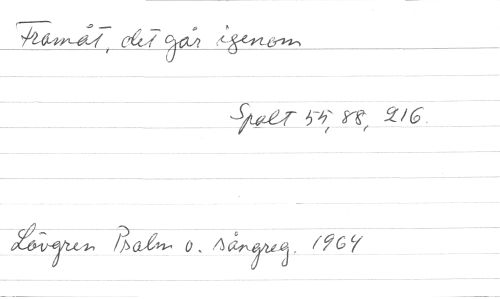 Framåt, det går igenom
Spalt 55, 88, 216.
Lövgren Psalm o. sångreg. 1964